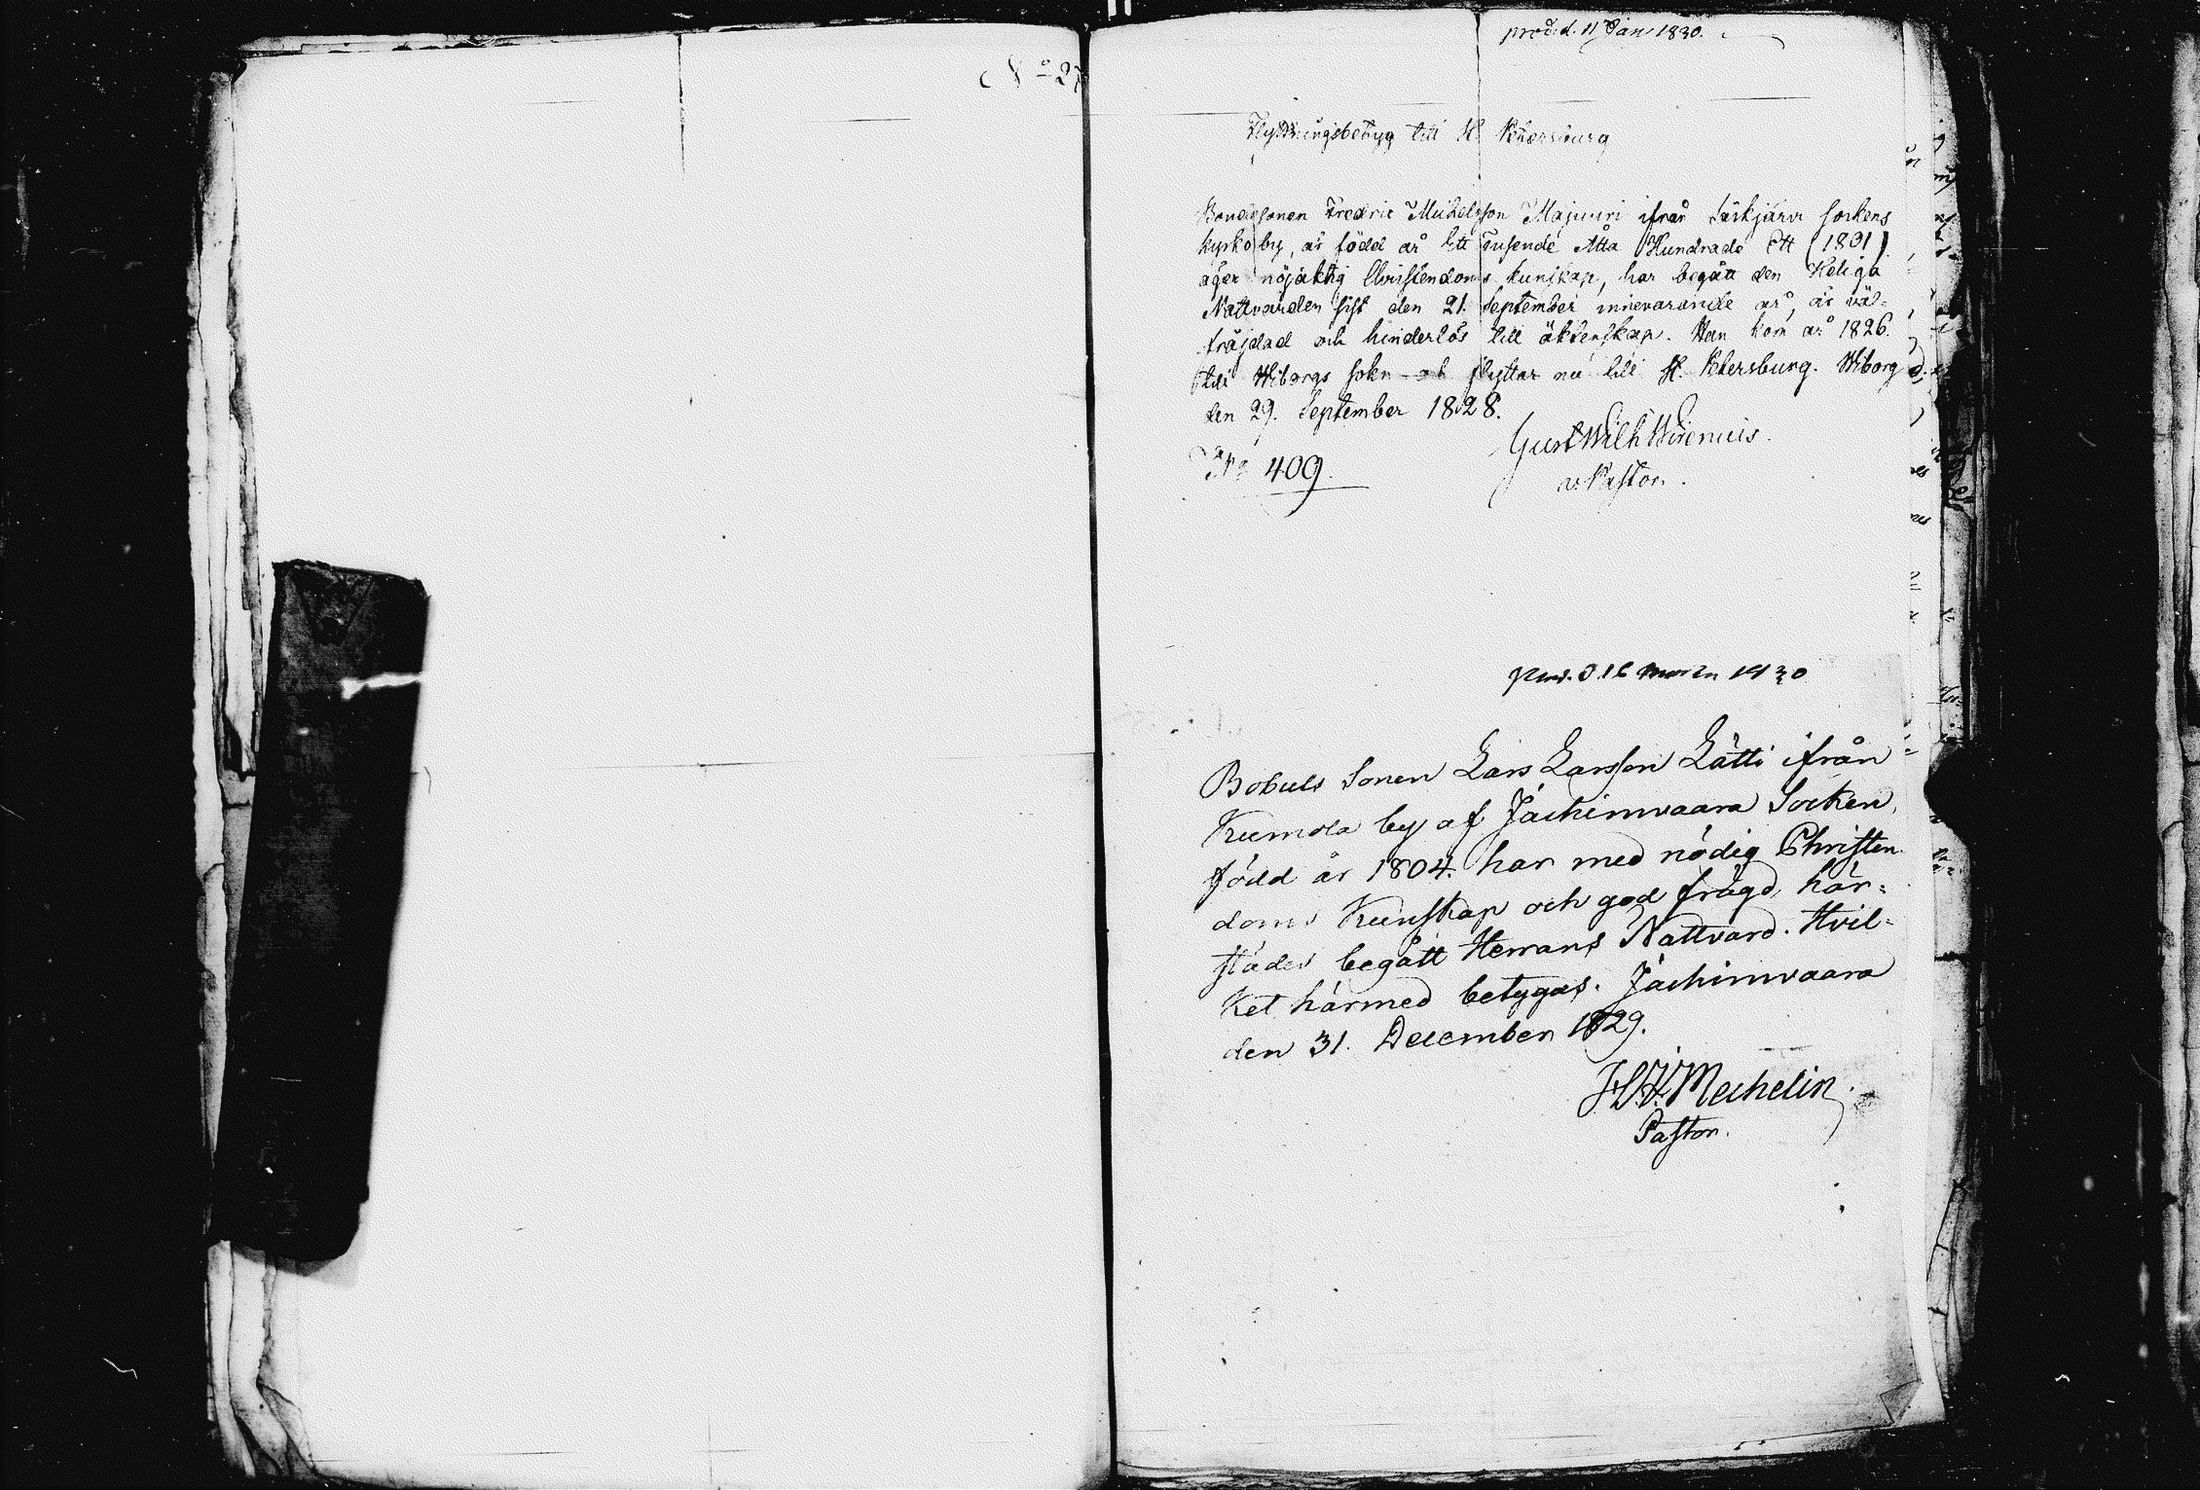 No 27
prod. d. 11 Jan 1830.
Flyttningsbetyg till St Petersburg
Bondesonen Fredric Michelsson Majuuri ifrån Säkjärvi sockens
kyrkoby, är född år Ett Tusende Åtta Hundrade Ett (1801)
äger nöjaktig Christendoms kunskap, har begått den Heliga
Nattvarden sist den 21. September innevarande år, är väl-
fräjdad och hinderlös till äktenskap. Han kom år 1826.
till Wiborgs sokn och flyttar nu till St. Petersburg. Wiborg d.
den 29. September 1828.
Gust Wilh Wirenius.
No 409.
v. Pastor.
prod. d. 16 martii 1830
Bobuls Sonen Lars Larsson Lätti ifrån
Kumola by af Jächimvaara Socken,
född år 1804. har med nödig Christen
doms Kunskap och god frägd, här=
städes begått Herrans Nattvard. Hvil=
ket härmed betygas. Jächimvaara
den 31. December 1829.
Mechelin
Pastor.